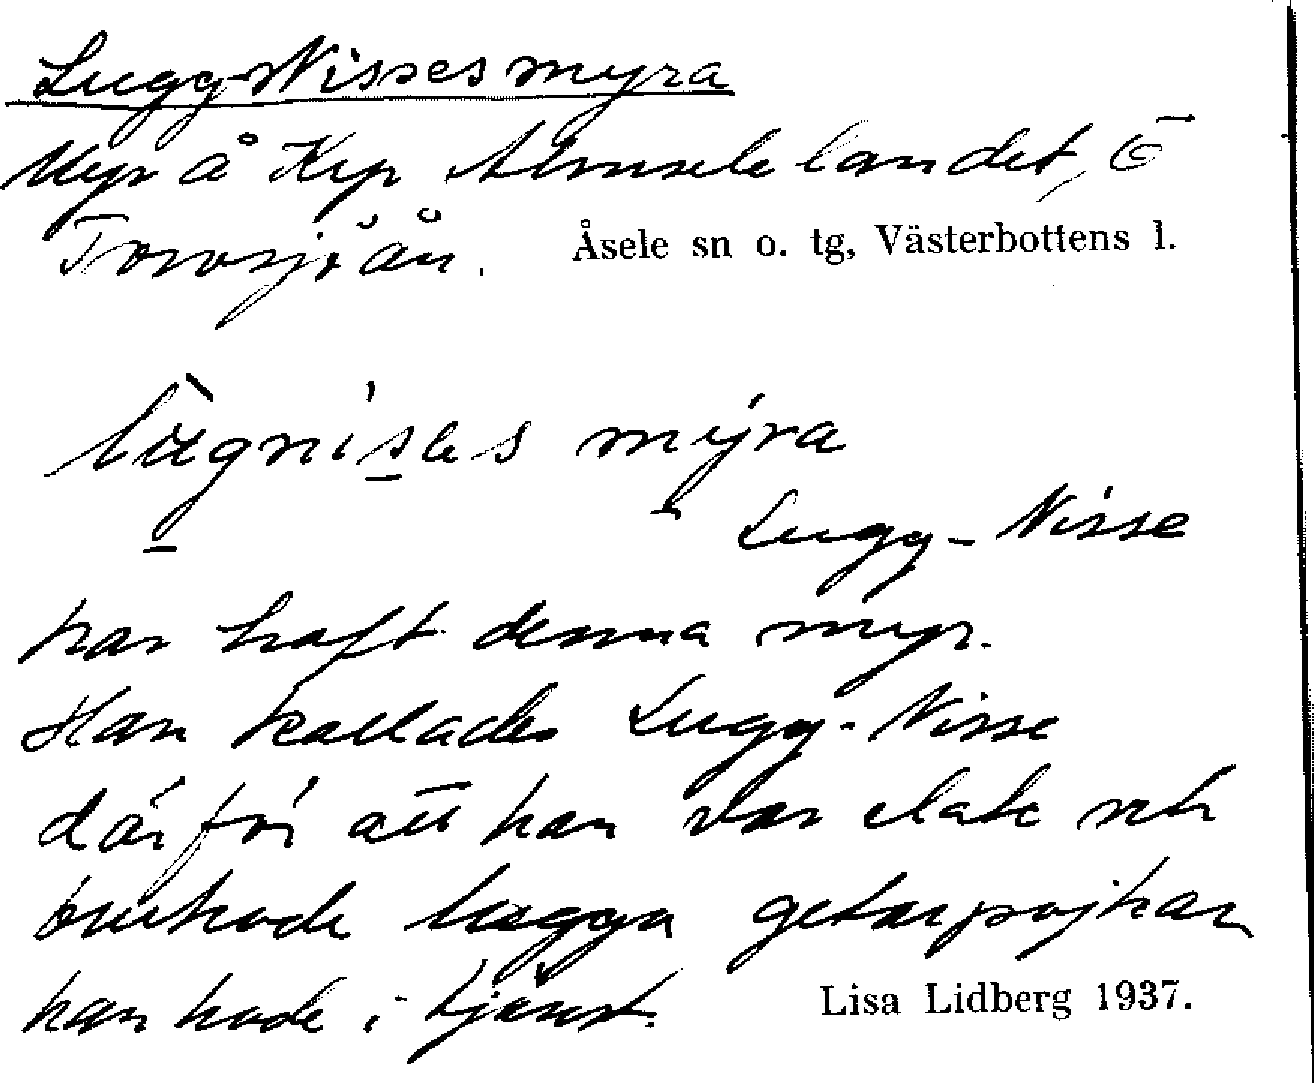 Lugg-Nisses myra
Myr å Krp Almselelandet, Ö
Torvsjöån. Åsele sn o. tg, Västerbottens l.
lùgnises mýra
Lugg-Nisse
har haft denna myr.
Han kallades Lugg-Nisse
därför att han var elak och
brukade lugga getarpojkar
han hade i tjänst.
Lisa Lidberg 1937.